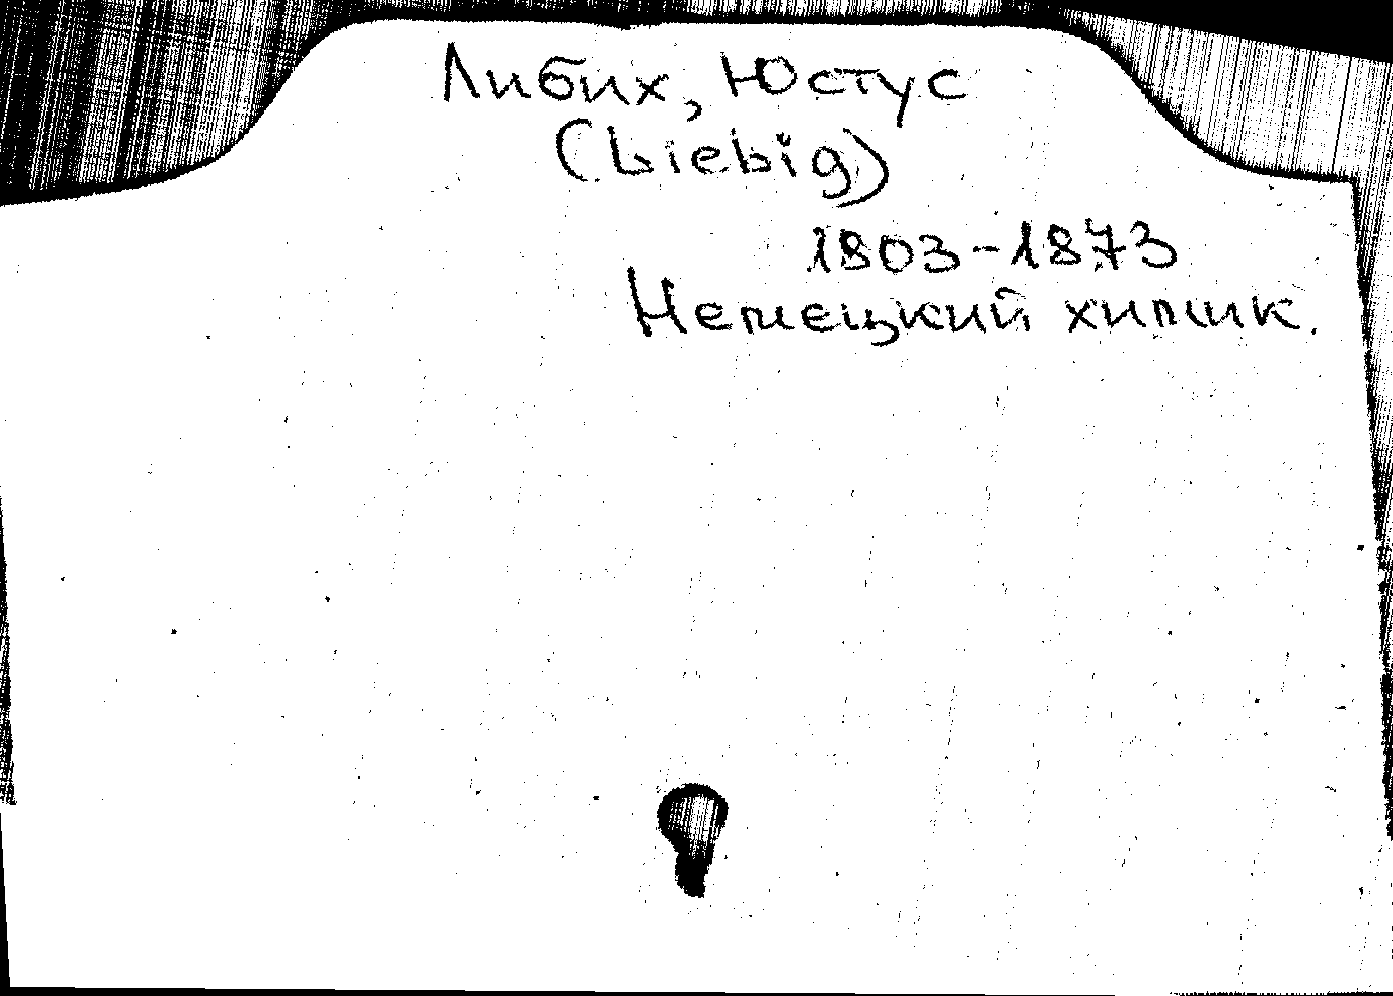 Либих, Юстус
(Liebig)
1803-1873
Немецкий химик.